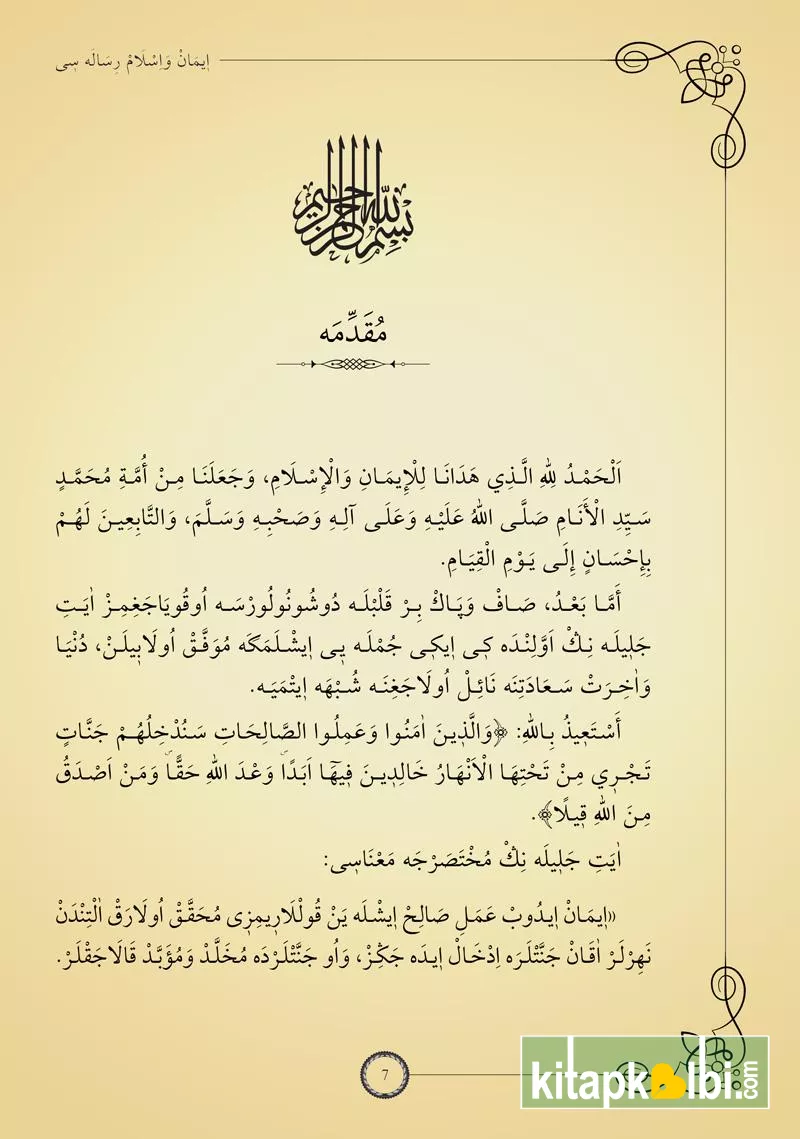 إيمَانْ وَإِسْلَامْ رِسَالَه سِي
بِسْمِ اللهِ الرَّحْمٰنِ الرَّحِيمِ
مُقَدِّمَه
اَلْحَمْدُ لِلهِ الَّذِي هَدَانَا لِلْإِيمَانِ وَالْإِسْلَامِ، وَجَعَلَنَا مِنْ أُمَّةِ مُحَمَّدٍ
سَيِّدِ الْأَنَامِ صَلَّى اللهُ عَلَيْهِ وَعَلَى آلِهِ وَصَحْبِهِ وَسَلَّمَ، وَالتَّابِعِينَ لَهُمْ
بِإِحْسَانٍ إِلَى يَوْمِ الْقِيَامِ.
أَمَّا بَعْدُ، صَافْ وَپَاكْ بِرْ قَلْبْلَه دُوشُونُولُورْسَه اُوقُويَاجَغِمِزْ اٰيَتِ
جَلِيلَه نِڭْ اَوَّلِنْدَه كِي اِيكِي جُمْلَه يِي اِيشْلَمَگَه مُوَفَّقْ اُولَابِيلَنْ، دُنْيَا
وَاٰخِرَتْ سَعَادَتِنَه نَائِلْ اُولَاجَغِنَه شُبْهَه اِيتْمَيَه.
أَسْتَعِيذُ بِاللهِ: ﴿وَالَّذِينَ اٰمَنُوا وَعَمِلُوا الصَّالِحَاتِ سَنُدْخِلُهُمْ جَنَّاتٍ
تَجْرِي مِنْ تَحْتِهَا الْاَنْهَارُ خَالِدِينَ فِيهَٓا اَبَدًاۜ وَعْدَ اللهِ حَقًّاۜ وَمَنْ اَصْدَقُ
مِنَ اللهِ قِيلًا﴾.
اٰيَتِ جَلِيلَه نِڭْ مُخْتَصَرْجَه مَعْنَاسِي:
«اِيمَانْ اِيدُوبْ عَمَلِ صَالِحْ اِيشْلَه يَنْ قُولْلَارِيمِزِي مُحَقَّقْ اُولَارَقْ اٰلْتِنْدَنْ
نَهِرْلَرْ اٰقَانْ جَنَّتْلَرَه اِدْخَالْ اِيدَه جَكِزْ، وَاُو جَنَّتْلَرْدَه مُخَلَّدْ وَمُؤَبَّدْ قَالَاجَقْلَرْ.
7
kitapkalbi.com